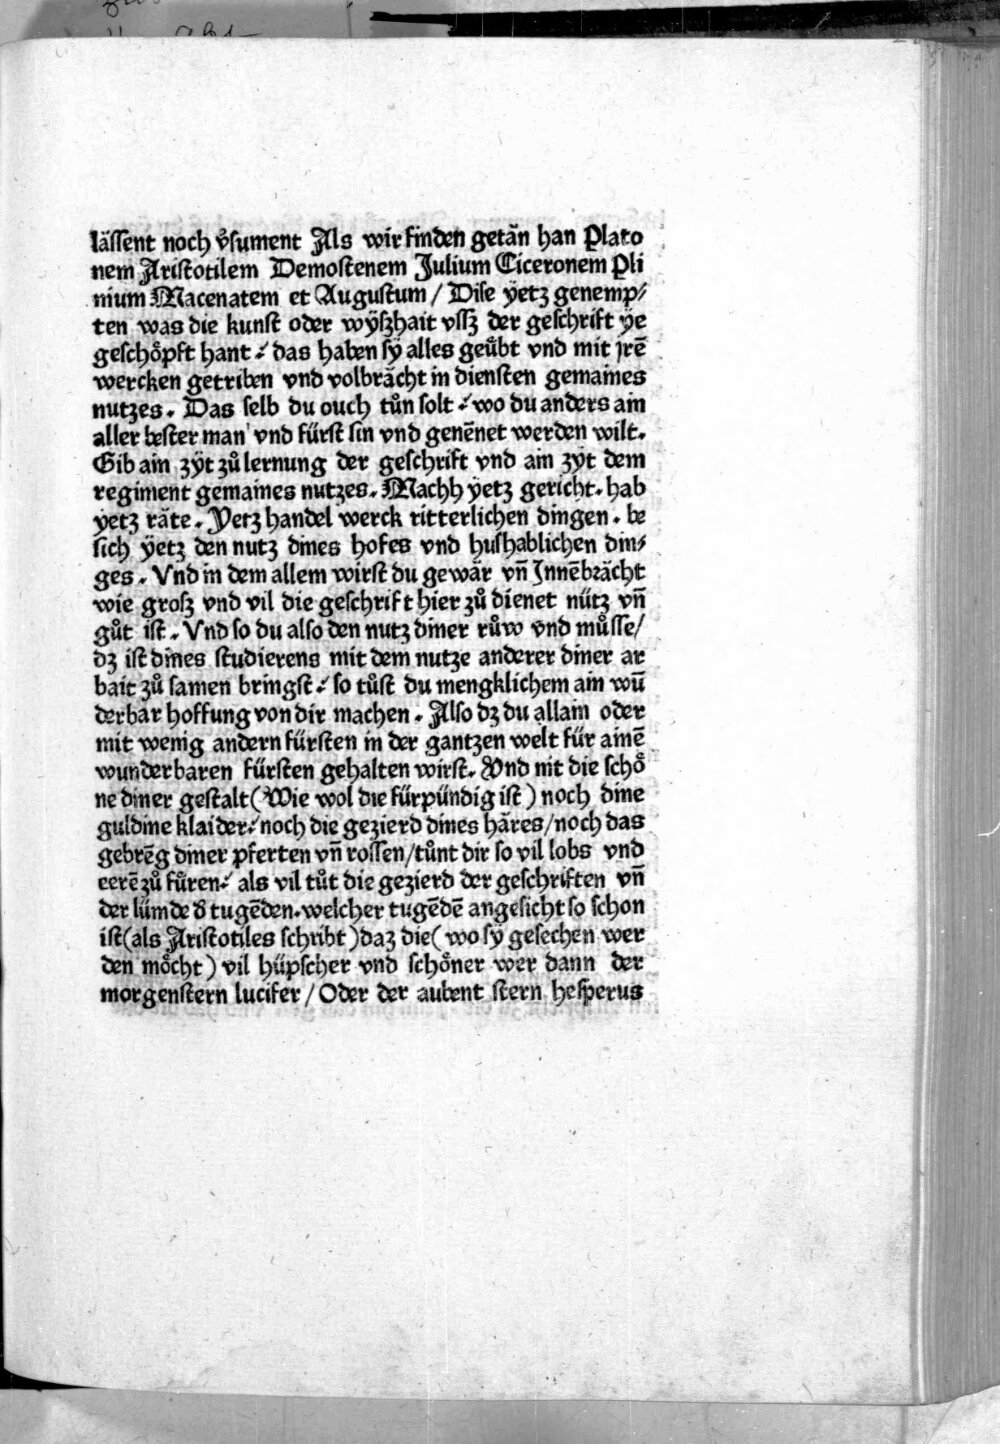 lässent noch v̊sument Als wir finden getän han Plato
nem Aristotilem Demostenem Julium Ciceronem Pli
nium Macenatem et Augustum / Dise ÿetz genemp⸗
ten was die kunst oder wÿßhait vsß der geschrifft ÿe
geschöpft hant ⁏ das haben sÿ alles geübt vnd mit jrē
wercken getriben vnd volbrächt in diensten gemaines
nutzes . Das selb du ouch tůn solt ⁏ wo du anders ain
aller bester man vnd fürst sin vnd genēnet werden wilt .
Gib ain zÿt zů lernung der geschrift vnd ain zÿt dem
regiment gemaines nutzes . Machh ÿetz gericht . hab
yetz räte . Yetz handel werck ritterlichen dingen . be
sich ÿetz den nutz dines hofes vnd hushablichen din⸗
ges . Vnd in dem allem wirst du gewär vn̄ Jnnēbrächt
wie groß vnd vil die geschrift hier zů dienet nütz vn̄
gůt ist . Vnd so du also den nutz diner růw vnd můsse /
dz ist dines studierens mit dem nutze anderer diner ar
bait zů samen bringst ⁏ so tůst du mengklichem ain wū
derbar hoffung von dir machen . Also dz du allain oder
mit wenig andern fürsten in der gantzen welt für ainē
wunderbaren fürsten gehalten wirst . Vnd nit die schö
ne diner gestalt ( Wie wol die fürpündig ist ) noch dine
guldine klaider ⁏ noch die gezierd dines häres / noch das
gebrēg diner pferten vn̄ rossen / tůnt dir so vil lobs vnd
eerē zů füren ⁏ als vil tůt die gezierd der geschriften vn̄
der lümde d̕ tugēden . welcher tugēdē angesicht so schon
ist ( als Aristotiles schribt ) daz die ( wo sÿ gesechen wer
den möcht ) vil hüpscher vnd schöner wer dann der
morgenstern lucifer / Oder der aubent stern hesperus